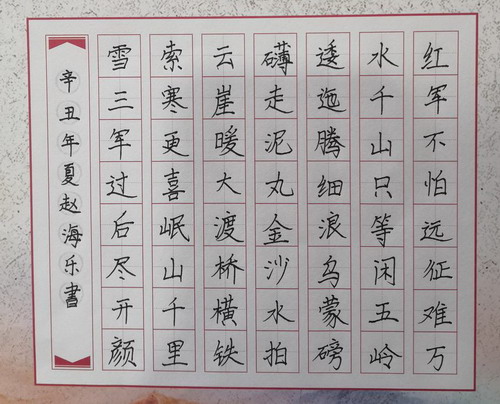 红军不怕远征难万
水千山只等闲五岭
逶迤腾细浪乌蒙磅
礴走泥丸金沙水拍
云崖暖大渡桥横铁
索寒更喜岷山千里
雪三军过后尽开颜
辛丑年夏赵海乐書